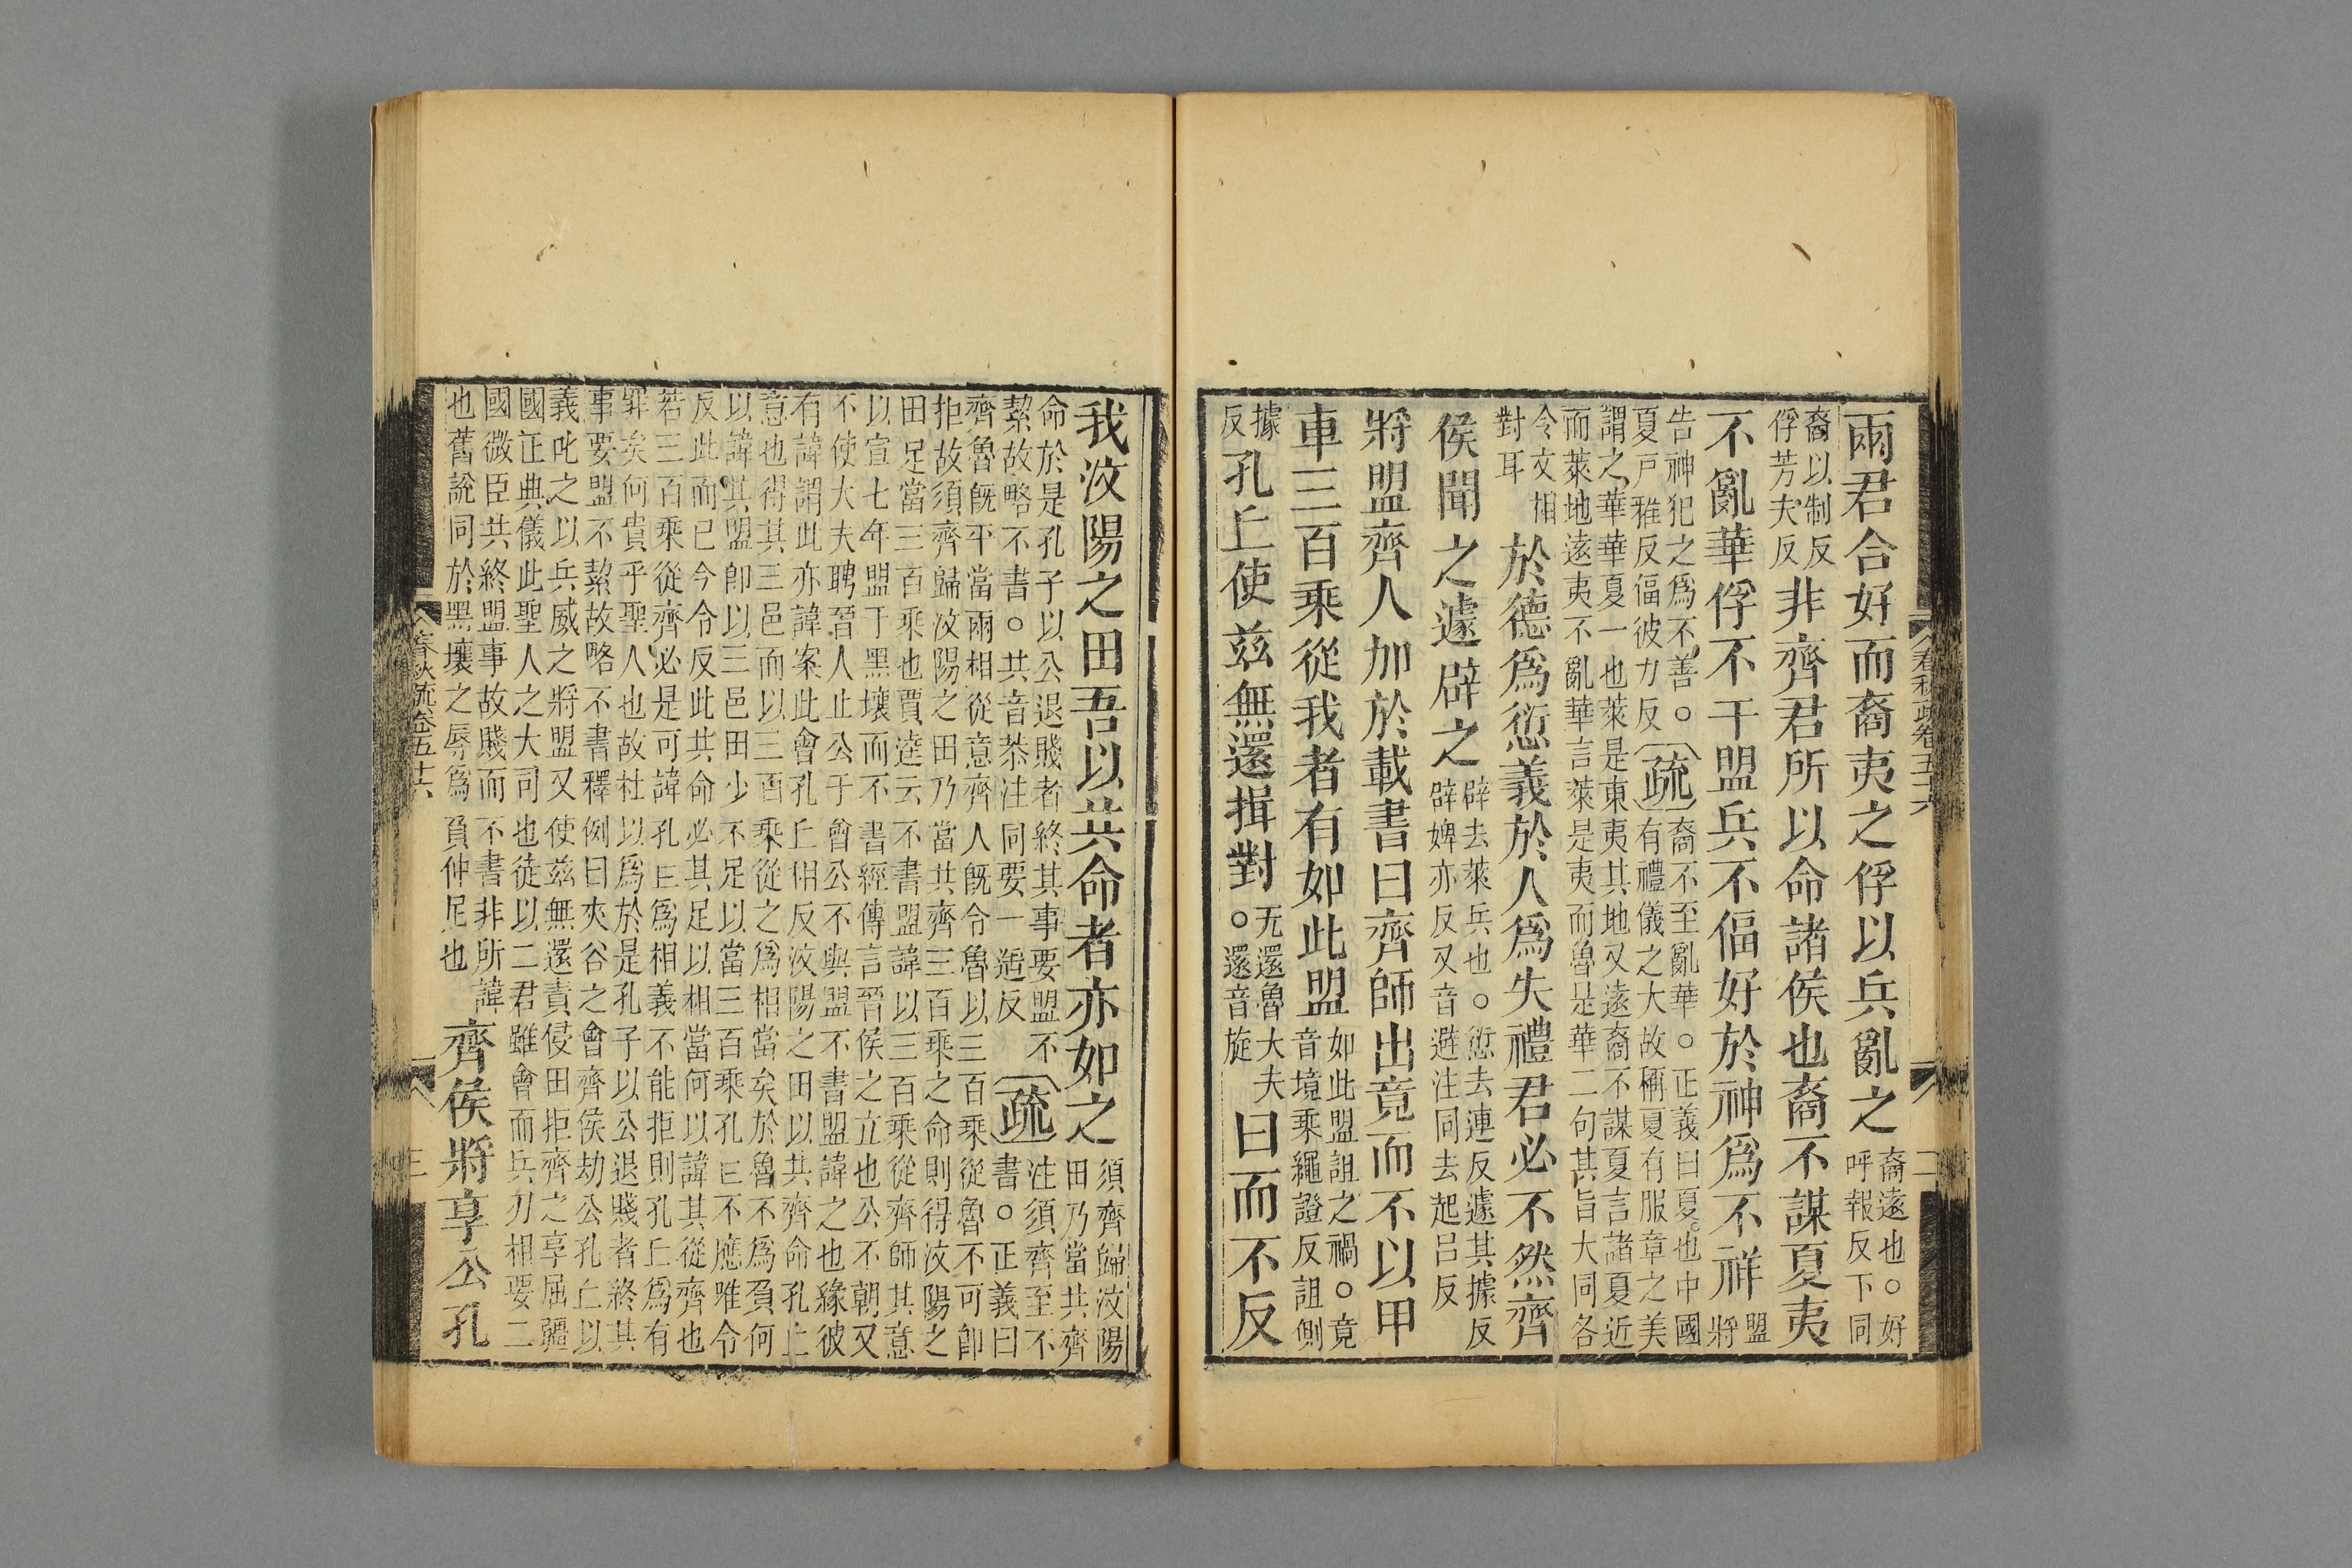 兩君合好而裔夷之俘以兵亂之裔遠也。好
呼報反下同
裔以制反
俘芳夫反非齊君所以命諸侯也裔不謀夏夷
不亂華俘不干盟兵不偪好於神爲不祥盟
將
告神犯之爲不善。
夏戸雅反偪彼力反疏裔不至亂華。正義曰夏也中國
有禮儀之大故稱夏有服章之美
謂之華華夏一也萊是東夷其地又遠裔不謀夏言諸夏近
而萊地遠夷不亂華言萊是夷而魯是華二句其旨大同各
令文相
對耳於德爲愆義於人爲失禮君必不然齊
侯聞之遽辟之辟去萊兵也。愆去連反遽其據反
辟婢亦反又音避注同去起呂反
將盟齊人加於載書曰齊師出竟而不以甲
車三百乘從我者有如此盟如此盟詛之禍。竟
音境乘繩證反詛側
據
反孔丘使兹無還揖對。无還魯大夫
還音旋曰而不反
春秋疏卷五十六
二
我汶陽之田吾以共命者亦如之須齊歸汶陽
田乃當共齊
命於是孔子以公退賤者終其事要盟不
絜故略不書。共音恭注同要一遥反疏注須齊至不
書。正義曰
齊魯既平當兩相從意齊人既令魯以三百乘從魯不可即
拒故須齊歸汶陽之田乃當共齊三百乘之命則得汶陽之
田足當三百乘也賈逵云不書盟諱以三百乘從齊師其意
以宣七年盟于黑壤而不書經傳言晉侯之立也公不朝又
不使大夫聘晉人止公于會公不與盟不書盟諱之也緣彼
有諱謂此亦諱案此會孔丘相反汶陽之田以共齊命孔丘
意也得其三邑而以三百乘從之爲相當矣於魯不爲負何
以諱其盟即以三邑田少不足以當三百乘孔丘不應唯令
反此而已今令反此共命必其足以相當何以諱其從齊也
若三百乘從齊必是可諱孔丘爲相義不能拒則孔丘爲有
罪矣何貴乎聖人也故杜以爲於是孔子以公退賤者終其
事要盟不絜故略不書釋例曰夾谷之會齊侯劫公孔丘以
義叱之以兵威之將盟又使兹無還責侵田拒齊之享屈彊
國正典儀此聖人之大司也徒以二君雖會而兵刃相要二
國微臣共終盟事故賤而不書非所諱
也舊說同於黑壤之辱爲負仲尼也齊侯將享公孔
春秋疏卷五十六
三